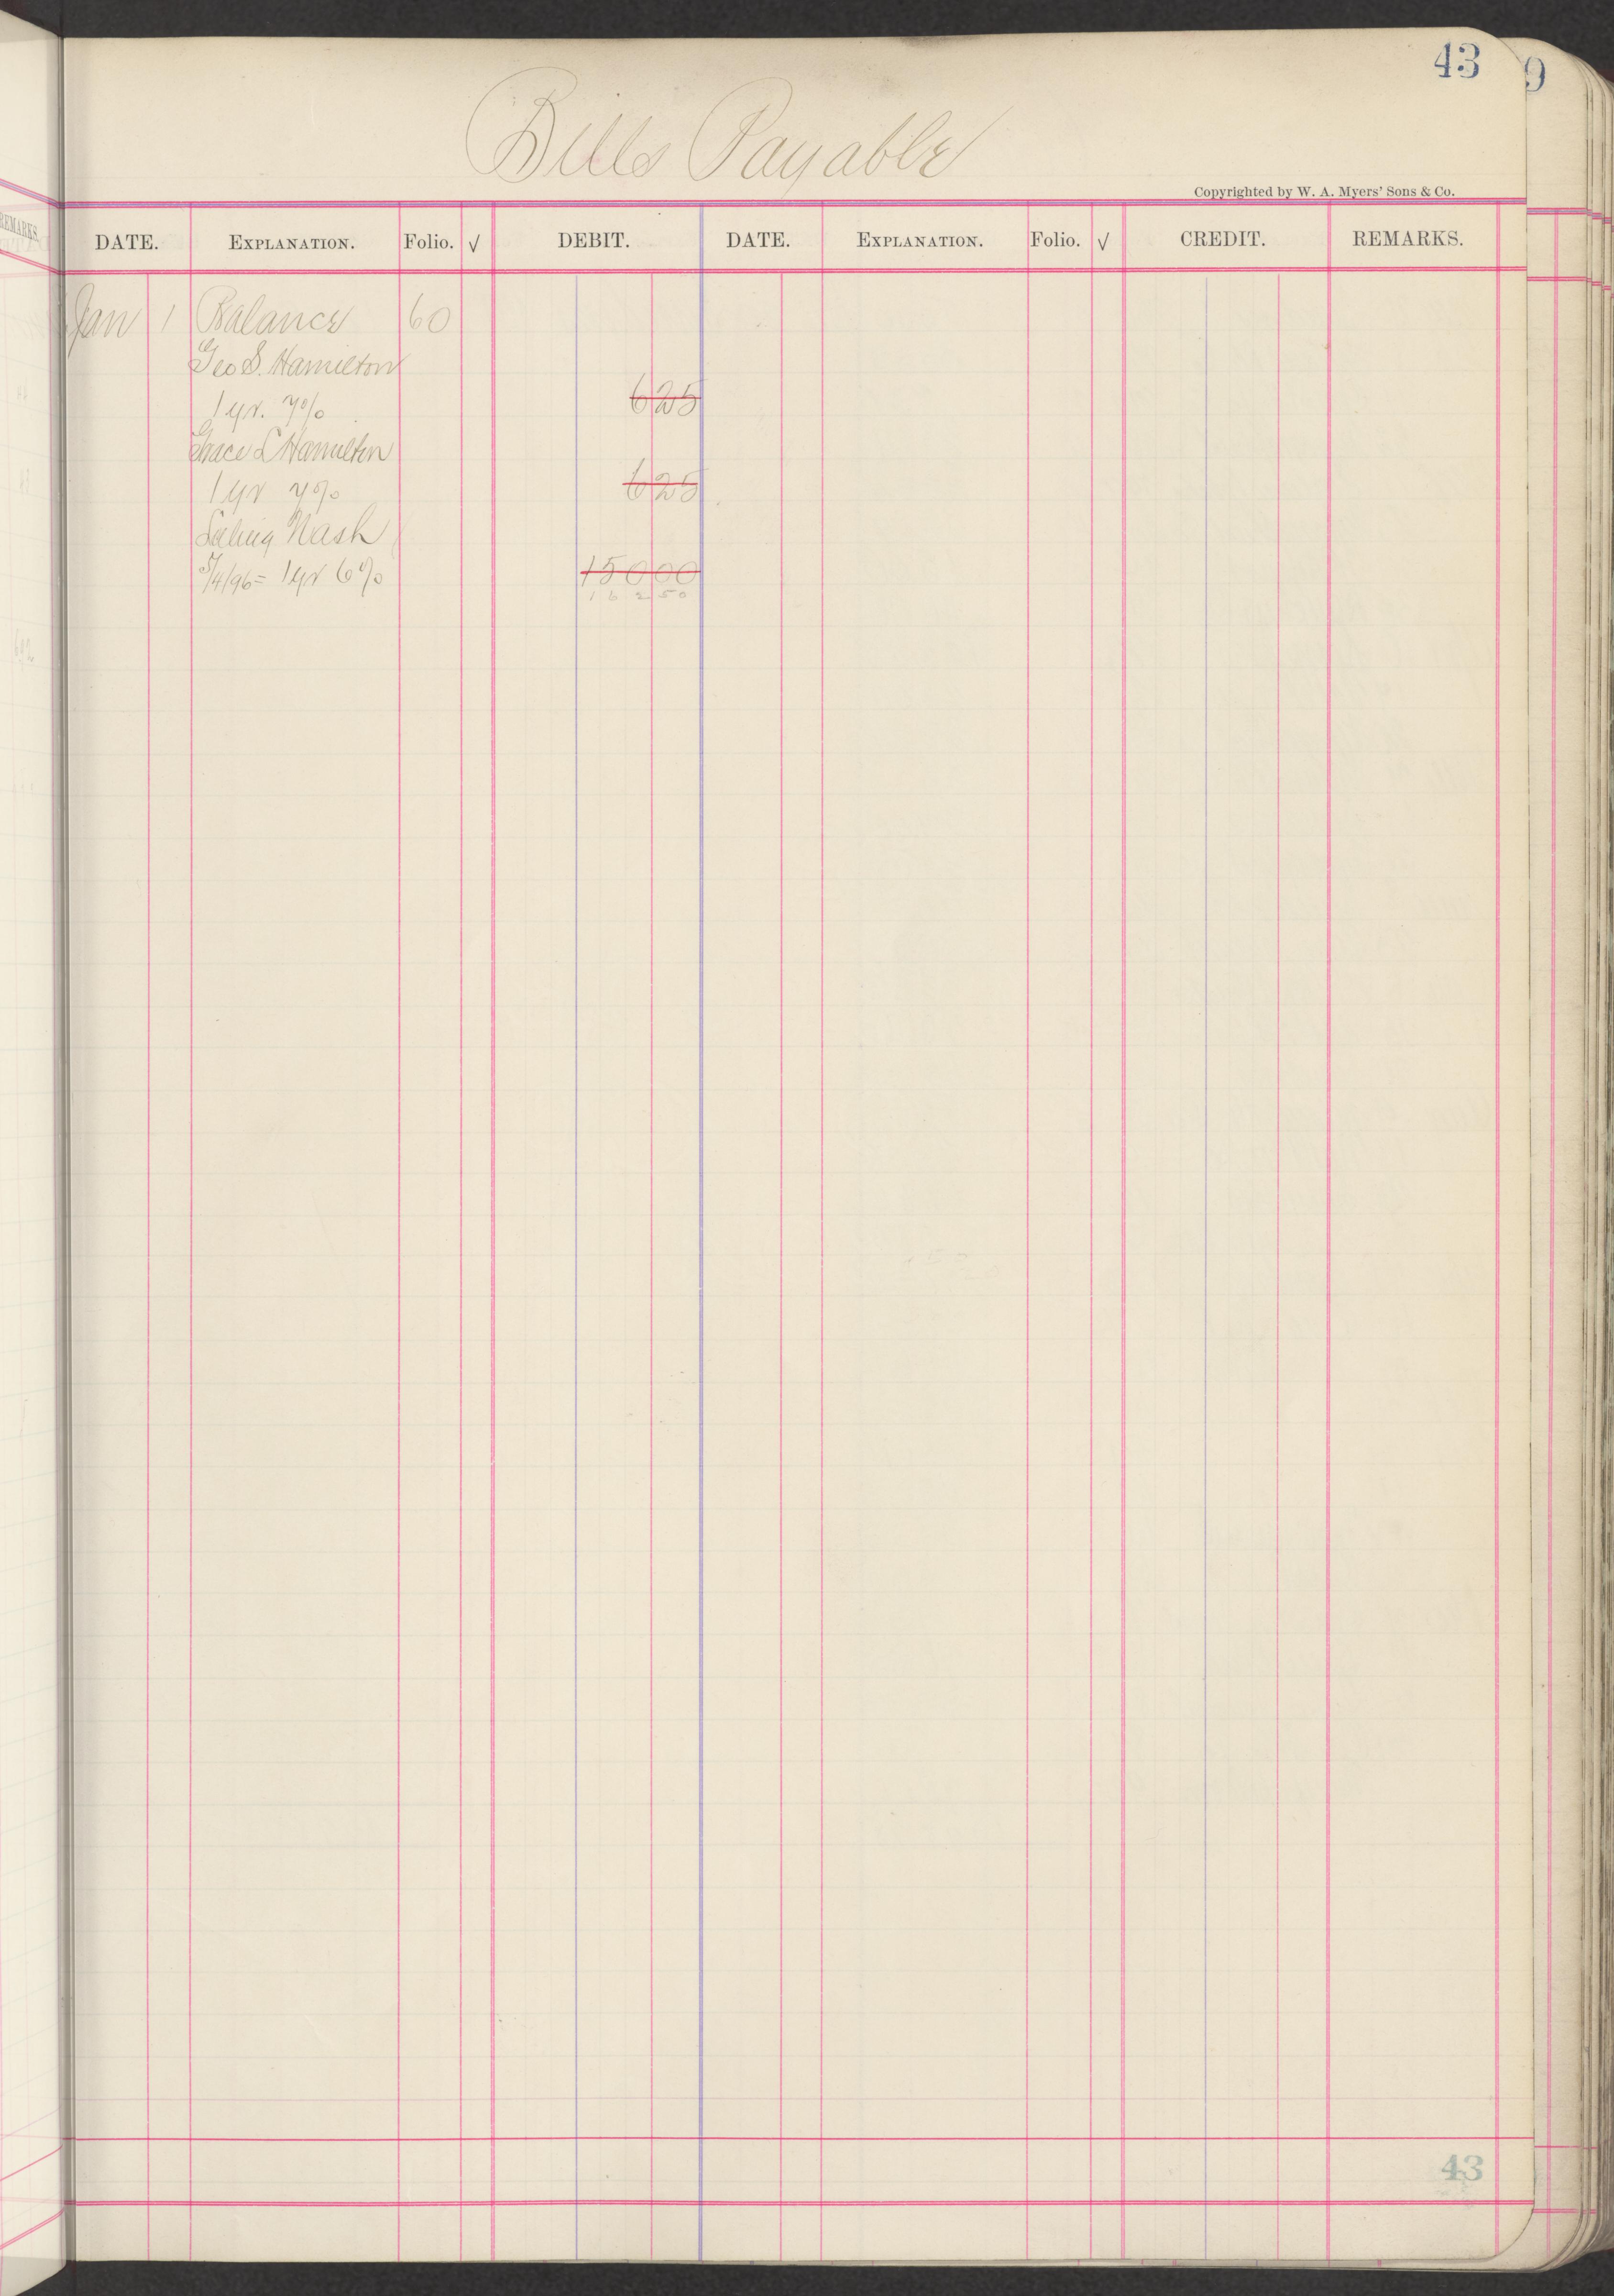 43
9
Bills Payable
Copyrighted by W. A. Myers' Sons & Co.
REMARKS.
DATE. EXPLANATION. Folio. √ DEBIT. DATE. EXPLANATION. Folio. √ CREDIT. REMARKS.
Jan 1 Balance 60
Geo S. Hamilton
1 yr. 7% 625
Grace L Hamilton
1 yr 7% 625
Nash
5/4/96 = 1 yr 6% 15000
16250
43